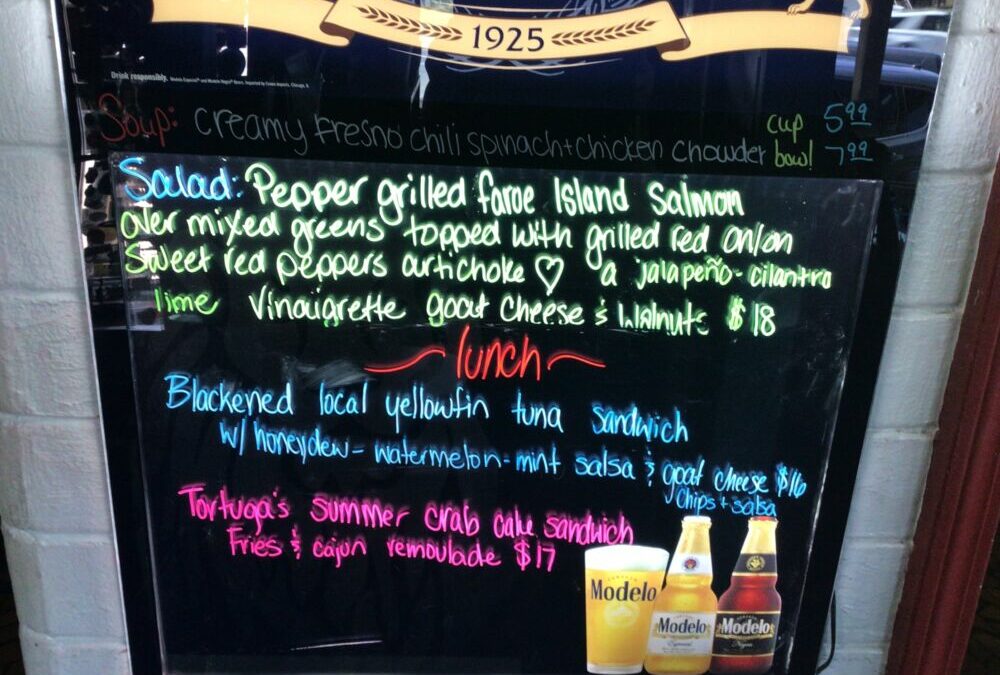 1925
Drink responsibly.
Soup: creamy Fresno chili spinach + chicken chowder cup 5.99
bowl 7.99
Salad: Pepper grilled faroe Island Salmon
over mixed greens topped with grilled red onion
Sweet red peppers artichoke ♡ a jalapeño-cilantro
lime Vinaigrette goat cheese & Walnuts $18
~ lunch ~
Blackened local yellowfin tuna sandwich
w/ honeydew-watermelon-mint salsa & goat cheese $16
Chips + salsa
Tortuga's summer crab cake sandwich
Fries & cajun remoulade $17
Modelo
Modelo
Especial
Modelo
Negra